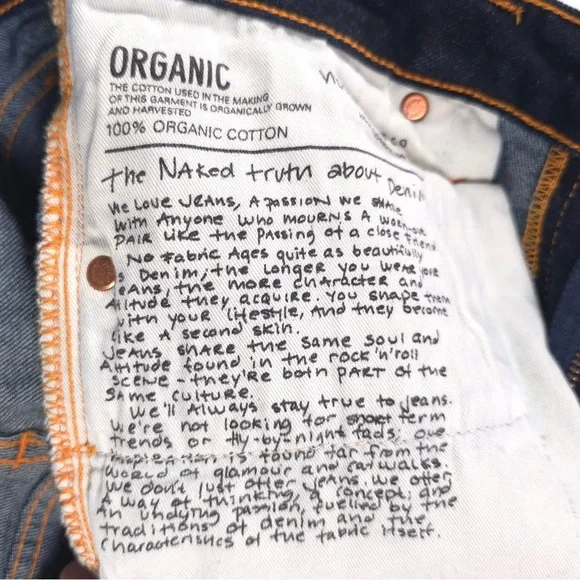 ORGANIC
THE COTTON USED IN THE MAKING
OF THIS GARMENT IS ORGANICALLY GROWN
AND HARVESTED
100% ORGANIC COTTON
the NAked truth about Denim
We Love JEANS, A PASSION WE SHARE
With Anyone Who MOURNS A WORN-OUt
PAIR Like the PASSing of A close friend
No FABRIC AGES quite as beautifully
as Denim, the Longer you WEAR your
jeans, the more character and
Attitude they acquire. You shape them
with your lifestyle, And they become
like A second skin.
Jeans share the same soul and
Attitude found in the rock'n'roll
scene - they're both part of the
same culture.
We'll Always stay true to jeans.
We're not looking for short term
trends or fly-by-night fads; our
inspiration is found far from the
world of glamour and catwalks.
We don't just offer jeans. We offer
A way of thinking, a concept, and
An undying passion, fuelled by the
traditions of denim and the
characteristics of the fabric itself.